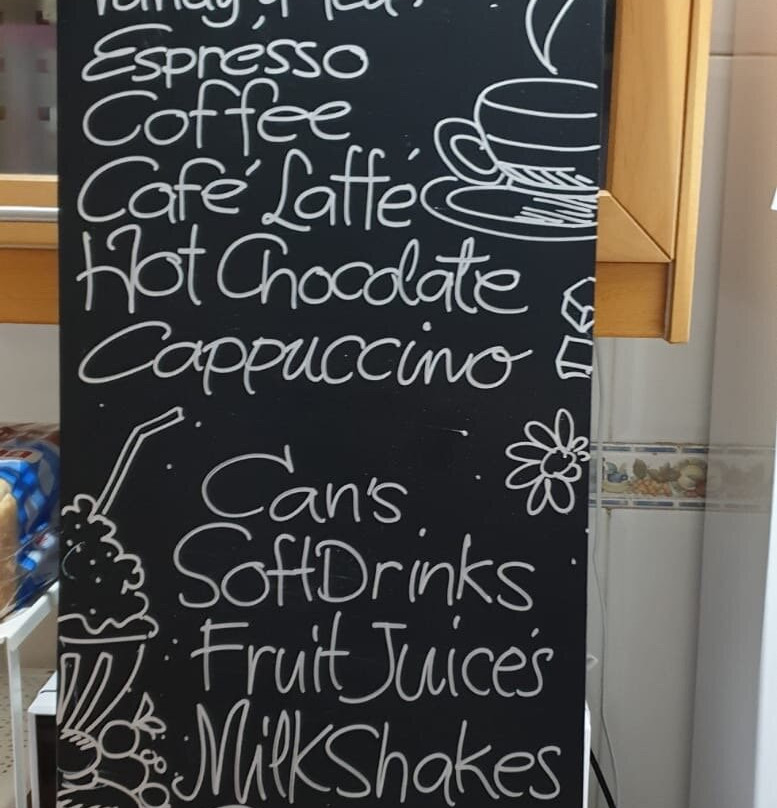 Espresso
Coffee
Café Latté
Hot Chocolate
Cappuccino
Can's
Soft Drinks
Fruit Juice's
MilkShakes